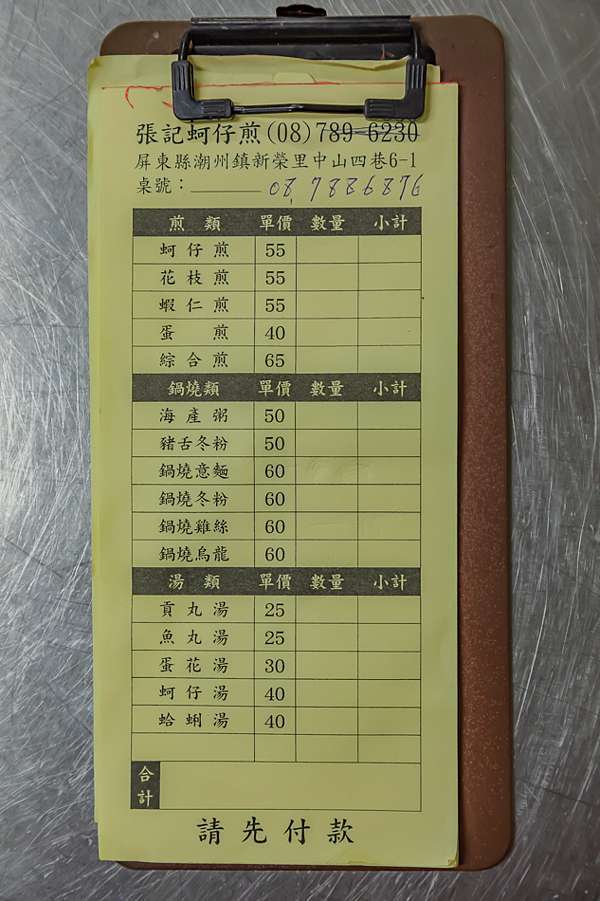 張記蚵仔煎(08)789-6230
屏東縣潮州鎮新榮里中山四巷6-1
桌號：________ 08.7886876
煎 類 單價 數量 小計
蚵仔煎 55
花枝煎 55
蝦仁煎 55
蛋 煎 40
綜合煎 65
鍋燒類 單價 數量 小計
海產粥 50
豬舌冬粉 50
鍋燒意麵 60
鍋燒冬粉 60
鍋燒雞絲 60
鍋燒烏龍 60
湯 類 單價 數量 小計
貢丸湯 25
魚丸湯 25
蛋花湯 30
蚵仔湯 40
蛤蜊湯 40
合計
請先付款